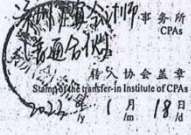 事务所
CPAs
(普通合伙)
转入协会盖章
Stamp of the transfer-in Institute of CPAs
2022年 1月 18日
/y /m /d